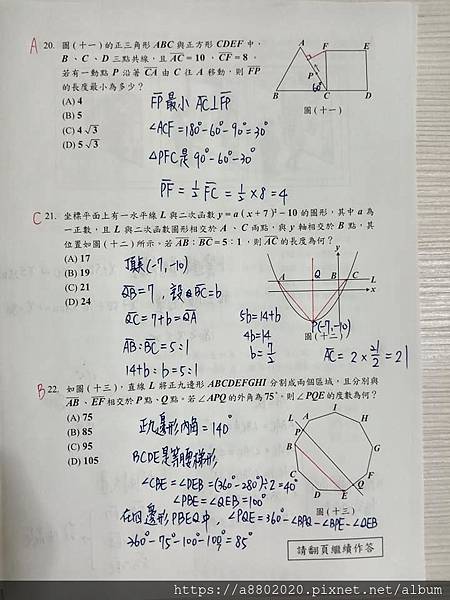 A 20. 圖(十一)的正三角形 ABC 與正方形 CDEF 中，
B、C、D 三點共線，且 AC=10、CF=8。
若有一動點 P 沿著 CA 由 C 往 A 移動，則 FP
的長度最小為多少？
(A) 4
(B) 5
(C) 4√3
(D) 5√3
FP最小 AC⊥FP
∠ACF=180°-60°-90°=30°
△PFC是90°-60°-30°
PF=1/2 FC=1/2×8=4
A F E
P
60°
B C D
圖(十一)
C 21. 坐標平面上有一水平線 L 與二次函數 y=a(x+7)²-10 的圖形，其中 a 為
一正數，且 L 與二次函數圖形相交於 A、C 兩點，與 y 軸相交於 B 點，其
位置如圖(十二)所示。若 AB：BC=5：1，則 AC 的長度為何？
(A) 17
(B) 19
(C) 21
(D) 24
頂點(-7,-10)
QB=7，設BC=b
QC=7+b=QA
AB:BC=5:1
14+b:b=5:1
5b=14+b
4b=14
b=7/2
y
A Q B C L
x
P(-7,-10)
圖(十二)
AC=2×21/2=21
B 22. 如圖(十三)，直線 L 將正九邊形 ABCDEFGHI 分割成兩個區域，且分別與
AB、EF 相交於 P 點、Q 點。若∠APQ 的外角為75°，則∠PQE 的度數為何？
(A) 75
(B) 85
(C) 95
(D) 105
正九邊形內角=140°
BCDE是等腰梯形
∠CBE=∠DEB=(360°-280°)÷2=40°
∠PBE=∠QEB=100°
在四邊形PBEQ中，∠PQE=360°-∠BPQ-∠BPE-∠QEB
360°-75°-100°-100°=85°
L A I
P H
B G
C F
Q
D E
圖(十三)
請翻頁繼續作答
https://a8802020.pixnet.net/album